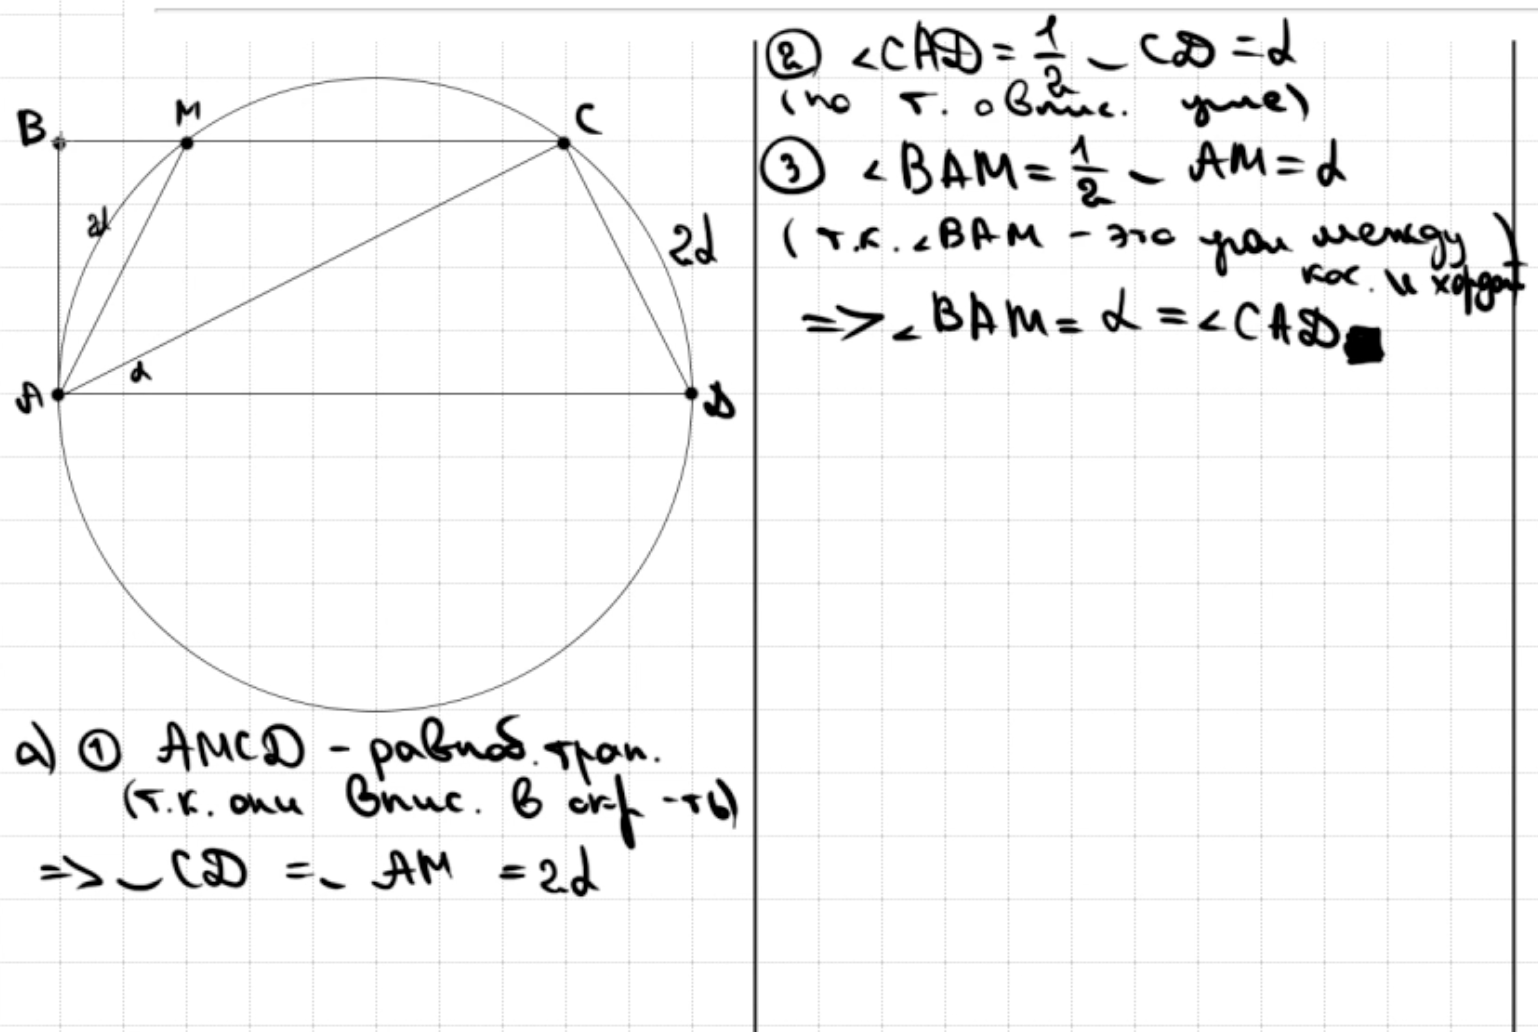 B
M
C
2α
2α
A
α
D
а) ① AMCD - равноб. трап.
(т.к. они впис. в окр-ть)
=> ◡ CD = ◡ AM = 2α
② ∠CAD = 1/2 ◡ CD = α
(по т. о впис. угле)
③ ∠BAM = 1/2 ◡ AM = α
(т.к. ∠BAM - это угол между
кас. и хордой)
=> ∠BAM = α = ∠CAD ■